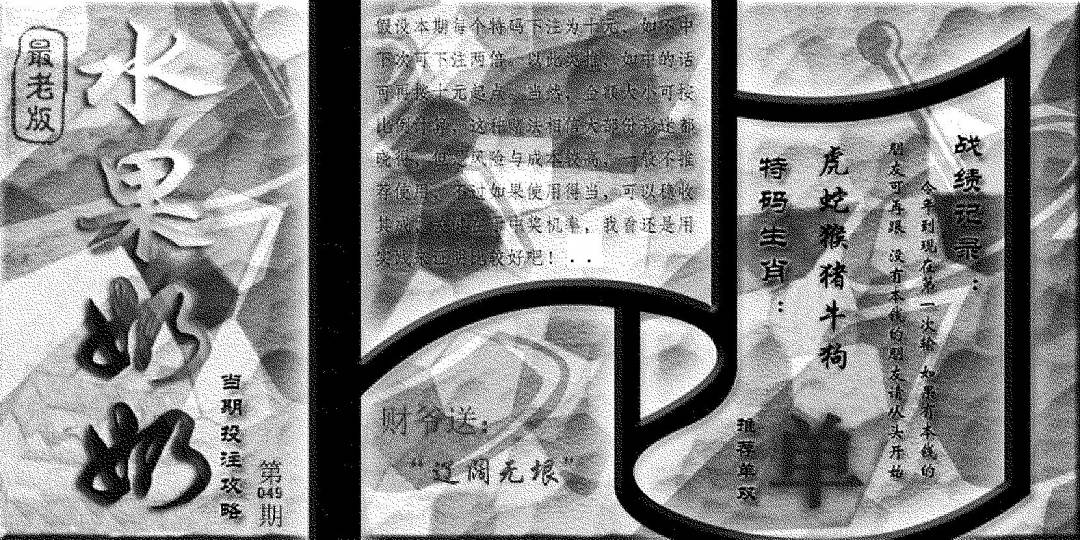 最老版
水果奶奶
当期投注攻略
第049期
假设本期每个特码下注为十元,如不中
下次可下注两倍。以此类推,如中的话
可再按十元起点。当然,金额大小可按
比例
这种赌法相信大部份彩迷都
晓得,但是风险与成本较高,一般不推
荐使用。不过如果使用得当,可以稳收
其成。
中奖机率,我看还是用
比较好吧!..
财爷送:
“辽阔无垠”
战绩记录:
今年到现在第一次输 如果有本钱的
朋友可再跟 没有本钱的朋友请从头开始
特码生肖:
虎蛇猴猪牛狗
推荐单双
单